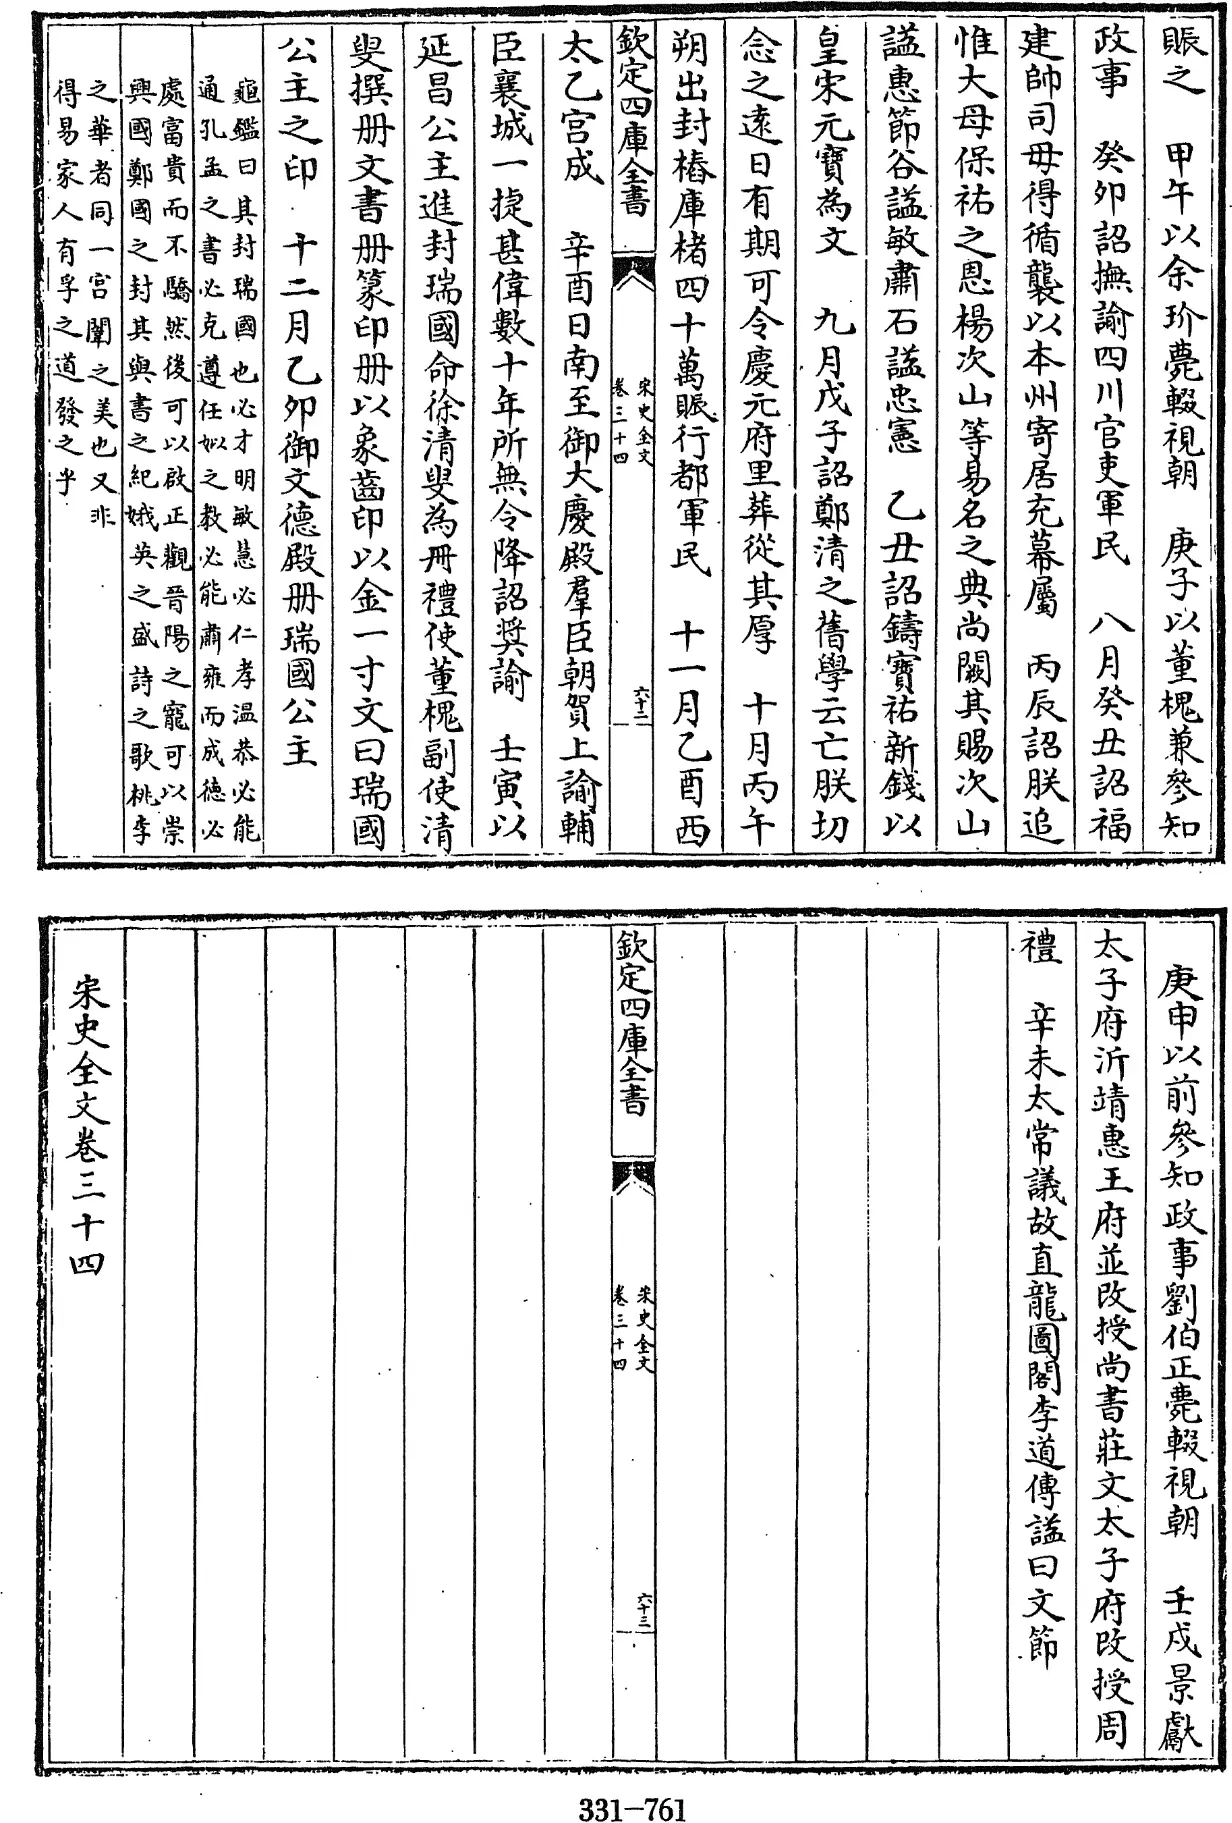 賑之　甲午以余玠薨輟視朝　庚子以董槐兼參知
政事　癸卯詔撫諭四川官吏軍民　八月癸丑詔福
建帥司毋得循襲以本州寄居充幕屬　丙辰詔朕追
惟大母保祐之恩楊次山等易名之典尚闕其賜次山
諡惠節谷諡敏肅石諡忠憲　乙丑詔鑄寶祐新錢以
皇宋元寶為文　九月戊子詔鄭清之舊學云亡朕切
念之遠日有期可令慶元府里葬從其厚　十月丙午
朔出封樁庫楮四十萬賑行都軍民　十一月乙酉西
欽定四庫全書
宋史全文
卷三十四
六十二
太乙宮成　辛酉日南至御大慶殿羣臣朝賀上諭輔
臣襄城一捷甚偉數十年所無令降詔奨諭　壬寅以
延昌公主進封瑞國命徐清叟為冊禮使董槐副使清
叟撰册文書册篆印册以象齒印以金一寸文曰瑞國
公主之印　十二月乙卯御文德殿册瑞國公主
龜鑑曰其封瑞國也必才明敏慧必仁孝溫恭必能
通孔孟之書必克遵任姒之教必能肅雍而成德必
處富貴而不驕然後可以啟正觀晉陽之寵可以崇
興國鄭國之封其與書之紀娥英之盛詩之歌桃李
之華者同一宮闈之美也又非
得易家人有孚之道發之乎
庚申以前參知政事劉伯正薨輟視朝　壬戌景獻
太子府沂靖惠王府並改授尚書莊文太子府改授周
禮　辛未太常議故直龍圖閣李道傳諡曰文節
欽定四庫全書
宋史全文
卷三十四
六十三
宋史全文卷三十四
331-761